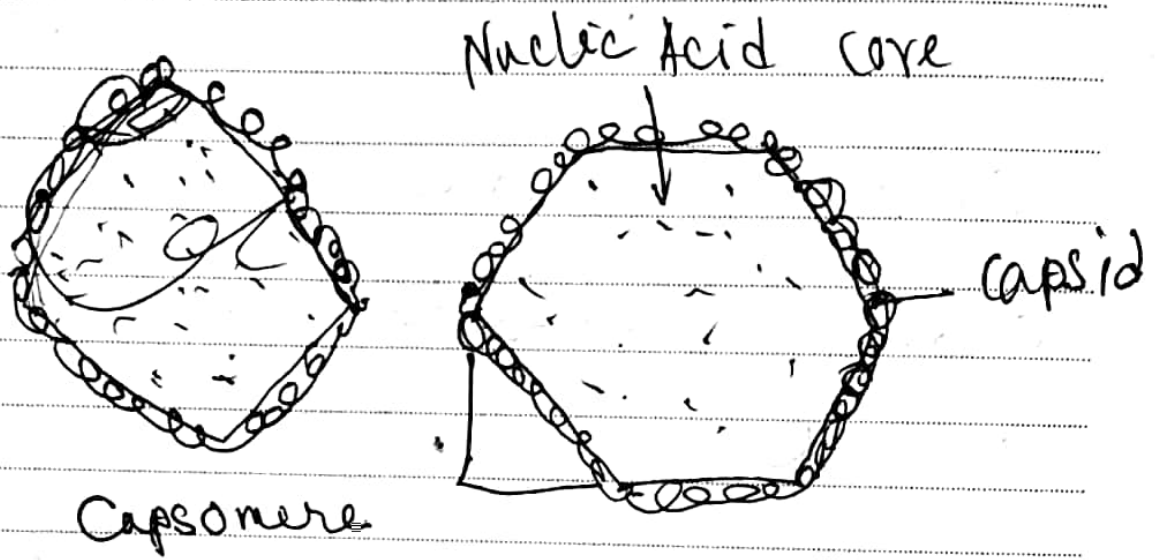 Nuclic Acid core
capsid
Capsomere